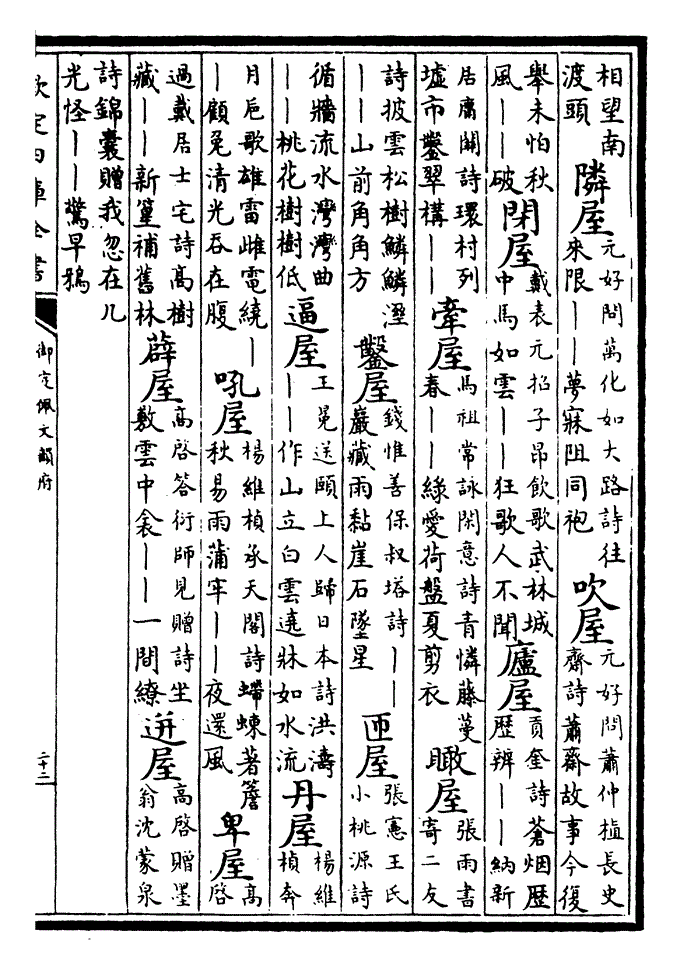 相望南
渡頭
隣屋
元好問萬化如大路詩往
來限——夢寐阻同袍
吹屋
元好問蕭仲植長史
齋詩蕭齋故事今復
舉未怕秋
風——破
閉屋
戴表元招子昂飲歌武林城
中馬如雲——狂歌人不聞
廬屋
貢奎詩蒼烟歴
歴辨——納新
居庸關詩環村列
墟市鑿翠構——
牽屋
馬祖常詠閑意詩青憐藤蔓
春——綠愛荷盤夏剪衣
瞰屋
張雨書
寄二友
詩披雲松樹鱗鱗溼
——山前角角方
鑿屋
錢惟善保叔塔詩——
巖藏雨黏崖石墜星
匝屋
張憲王氏
小桃源詩
循牆流水灣灣曲
——桃花樹樹低
逼屋
王冕送頤上人歸日本詩洪濤
——作山立白雲遶牀如水流
丹屋
楊維
楨奔
月巵歌雄雷雌電繞—
—顧兔清光吞在腹
吼屋
楊維楨承天閣詩螮蝀著簷
秋易雨蒲牢——夜還風
卑屋
高
啓
過戴居士宅詩高樹
藏——新篁補舊林
薜屋
高啓答衍師見贈詩坐
敷雲中衾——一間繚
迸屋
高啓贈墨
翁沈蒙泉
詩錦囊贈我忽在几
光怪——驚早鴉
欽定四庫全書
御定佩文韻府
二十二